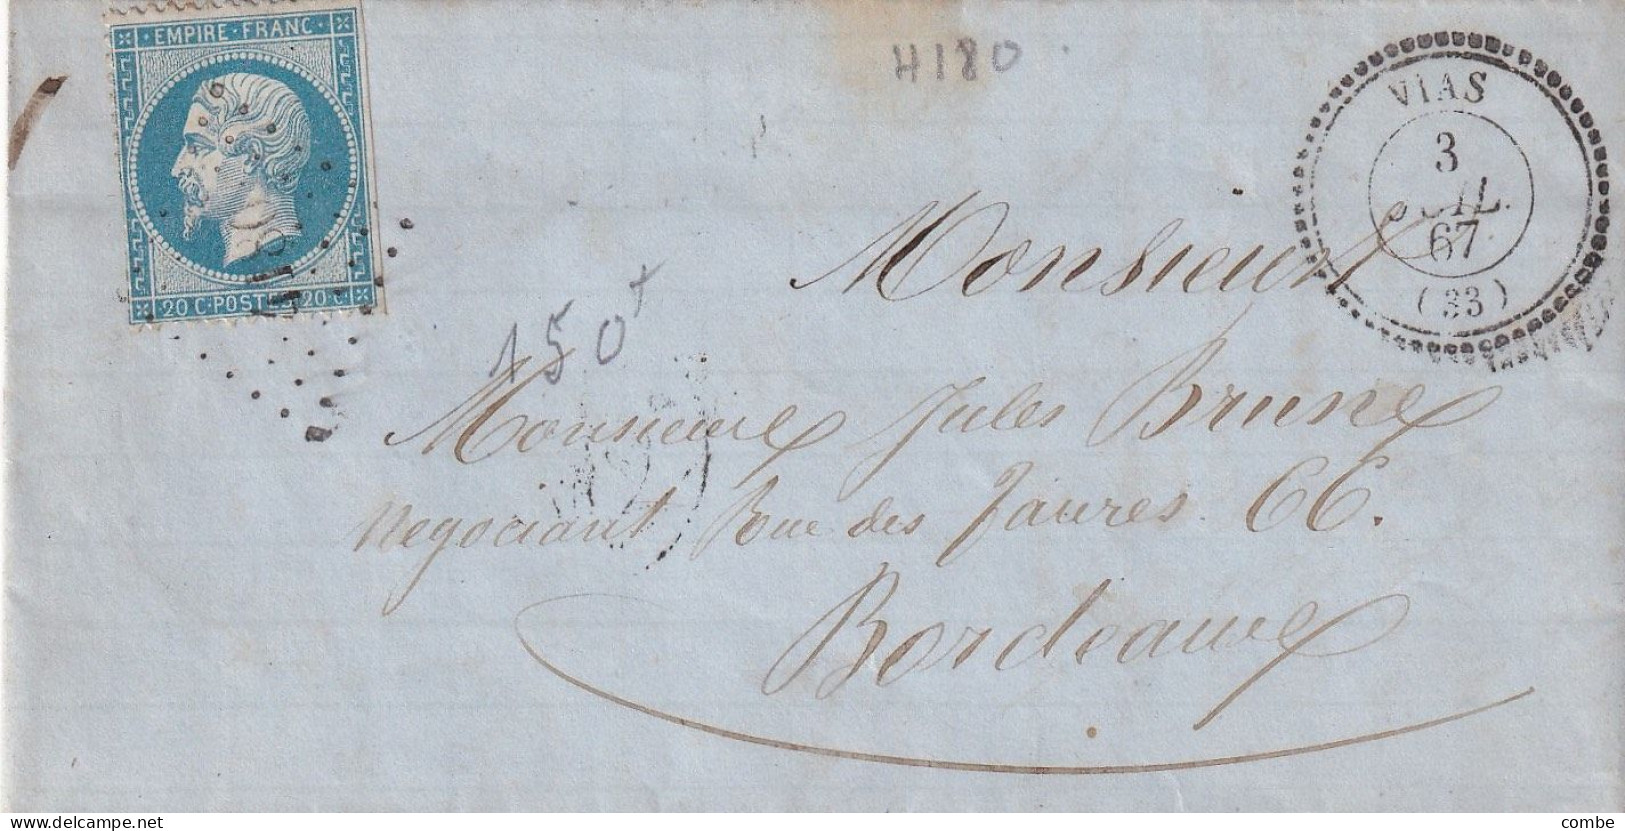 EMPIRE · FRANC ·
20 C · POSTES 20 · C
4180
VIAS
3
JUIL.
67
(33)
150+
Monsieur
Monsieur Jules Brunet
Negociant Rue des Faures 66.
Bordeaux
delcampe.net
combe